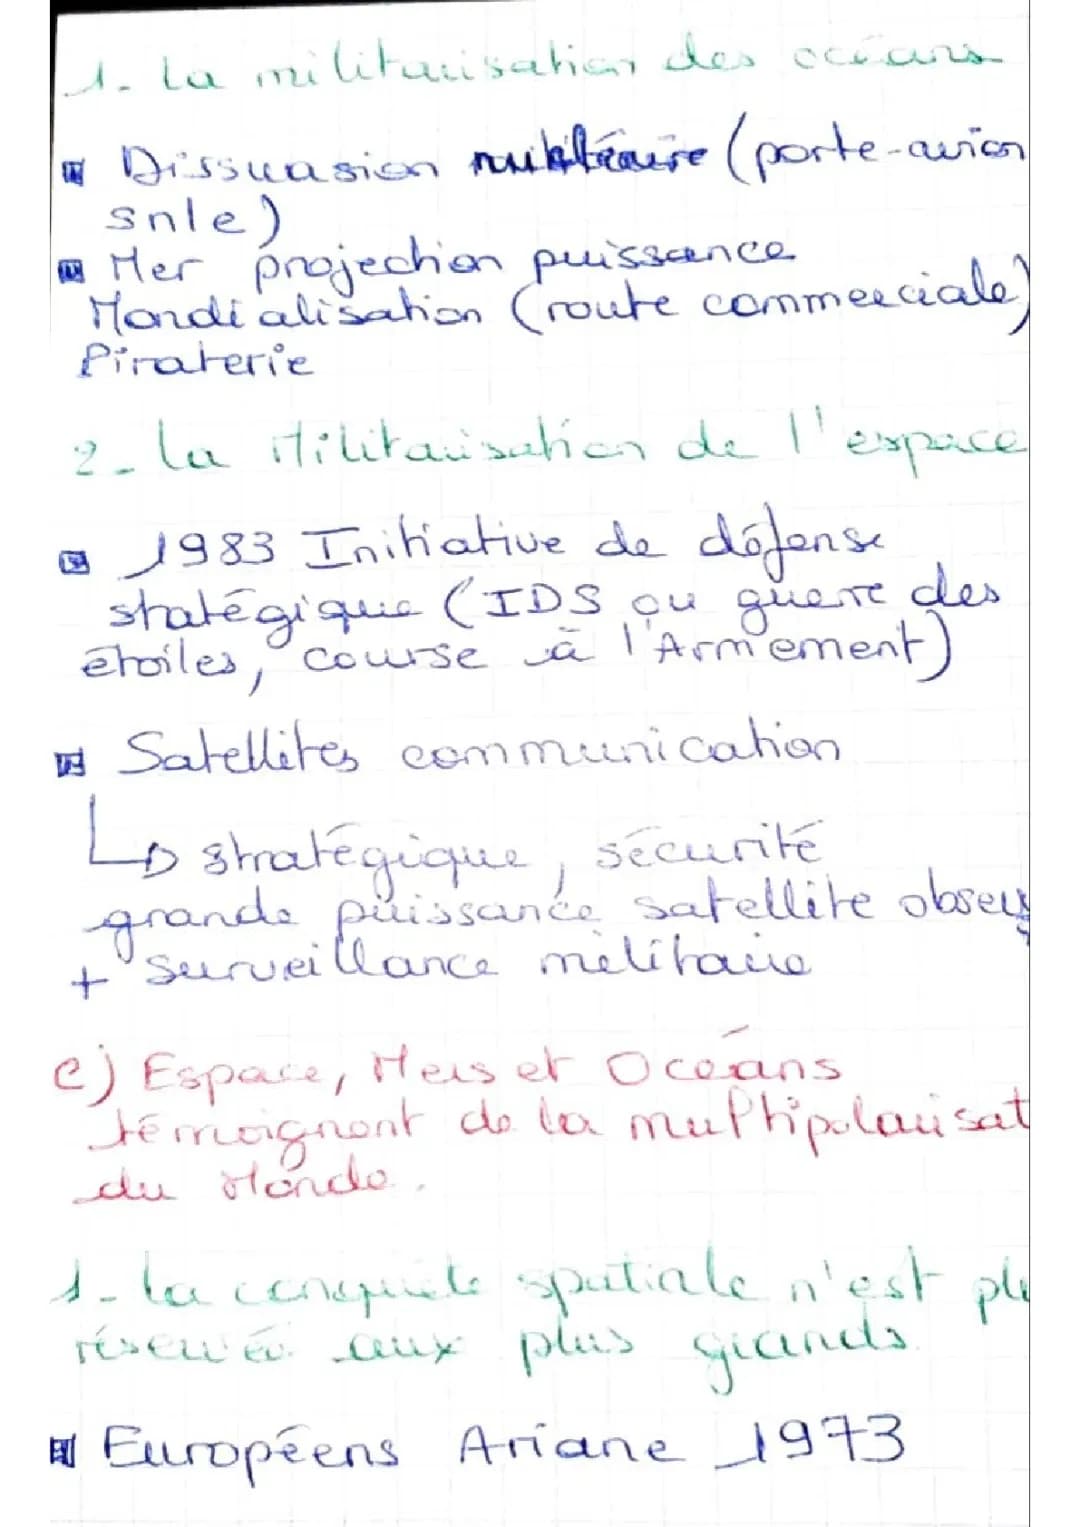 1- La militarisation des océans
Dissuasion nukléaire (porte-avion
snle)
Mer projection puissance
Mondialisation (route commerciale)
Piraterie
2- La Militarisation de l'espace
1983 Initiative de défense
statégique (IDS ou guerre des
étoiles, course à l'Armement)
Satellites communication
↳ stratégique, sécurité
grande puissance satellite obser
+ surveillance militaire
C) Espace, Mers et Océans
témoignent de la multipolarisat
du Monde.
1- La conquête spatiale n'est plu
réservée aux plus grands
Européens Ariane 1973